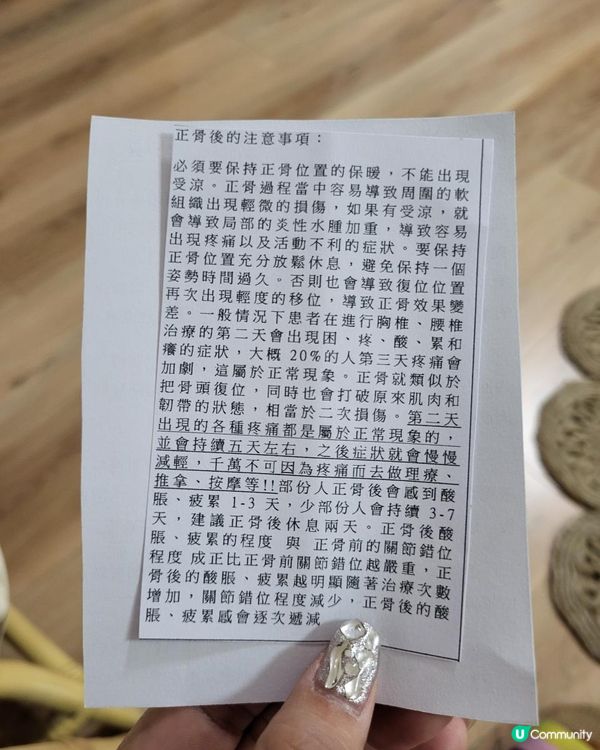 正骨後的注意事項：
必須要保持正骨位置的保暖，不能出現
受涼。正骨過程當中容易導致周圍的軟
組織出現輕微的損傷，如果有受涼，就
會導致局部的炎性水腫加重，導致容易
出現疼痛以及活動不利的症狀。要保持
正骨位置充分放鬆休息，避免保持一個
姿勢時間過久。否則也會導致復位位置
再次出現輕度的移位，導致正骨效果變
差。一般情況下患者在進行胸椎、腰椎
治療的第二天會出現困、疼、酸、累和
癢的症狀，大概 20%的人第三天疼痛會
加劇，這屬於正常現象。正骨就類似於
把骨頭復位，同時也會打破原來肌肉和
韌帶的狀態，相當於二次損傷。第二天
出現的各種疼痛都是屬於正常現象的，
並會持續五天左右，之後症狀就會慢慢
減輕，千萬不可因為疼痛而去做理療、
推拿、按摩等!!部份人正骨後會感到酸
脹、疲累 1-3 天，少部份人會持續 3-7
天，建議正骨後休息兩天。正骨後酸
脹、疲累的程度 與 正骨前的關節錯位
程度 成正比正骨前關節錯位越嚴重，正
骨後的酸脹、疲累越明顯隨著治療次數
增加，關節錯位程度減少，正骨後的酸
脹、疲累感會逐次遞減
U Community